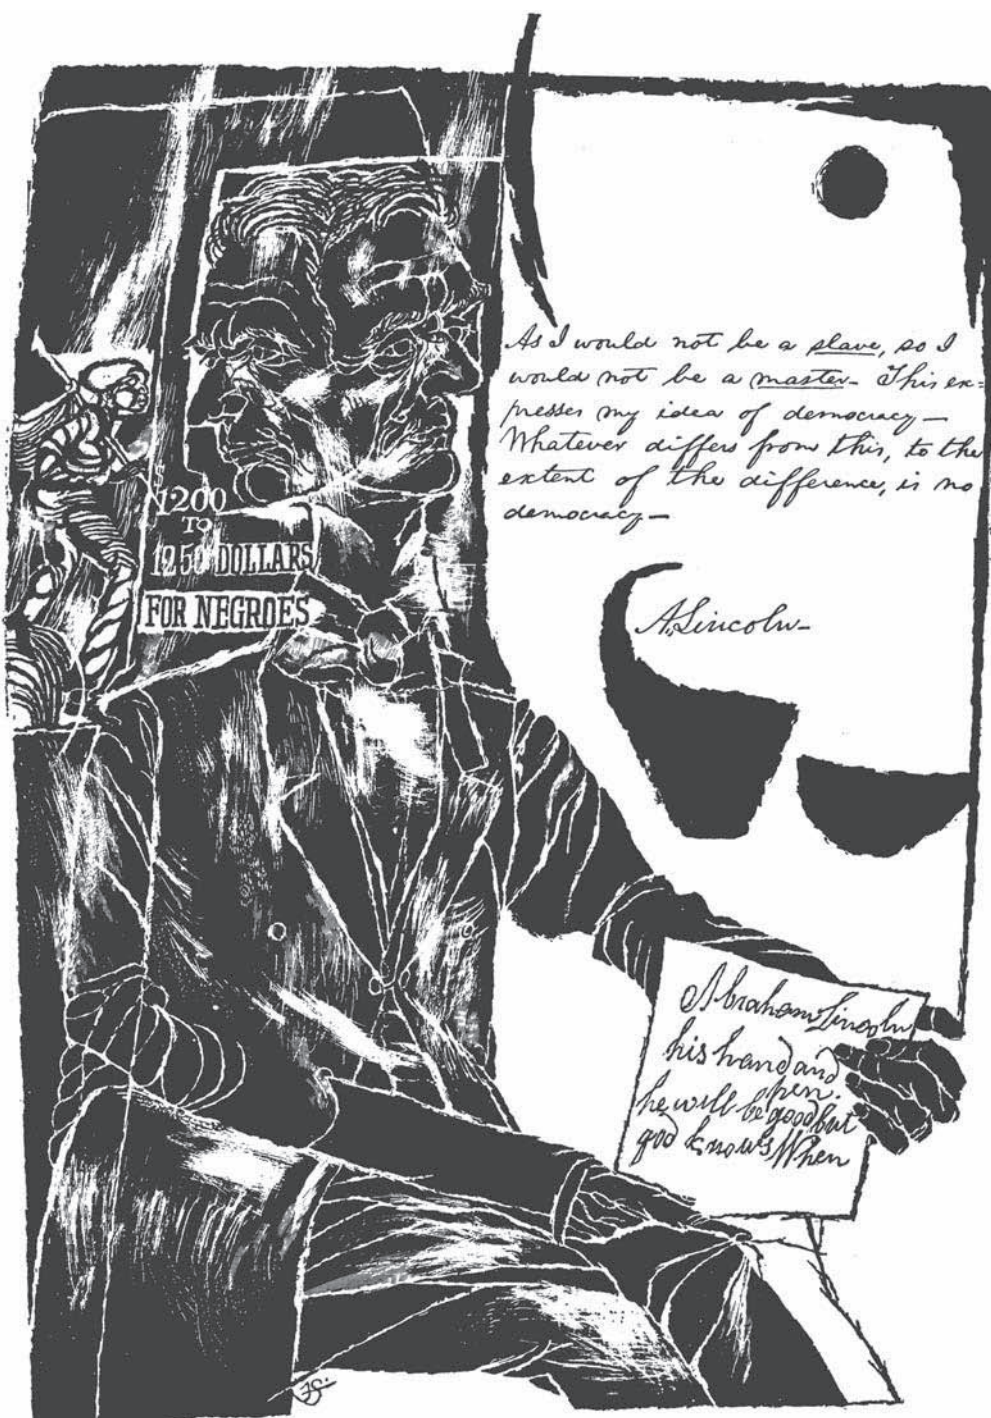 $
1200
TO
1250 DOLLARS
FOR NEGROES
As I would not be a slave, so I
would not be a master- This ex=
presses my idea of democracy-
Whatever differs from this, to the
extent of the difference, is no
democracy-
A. Lincoln-
Abraham Lincoln
his hand and
pen.
he will be good but
god knows When